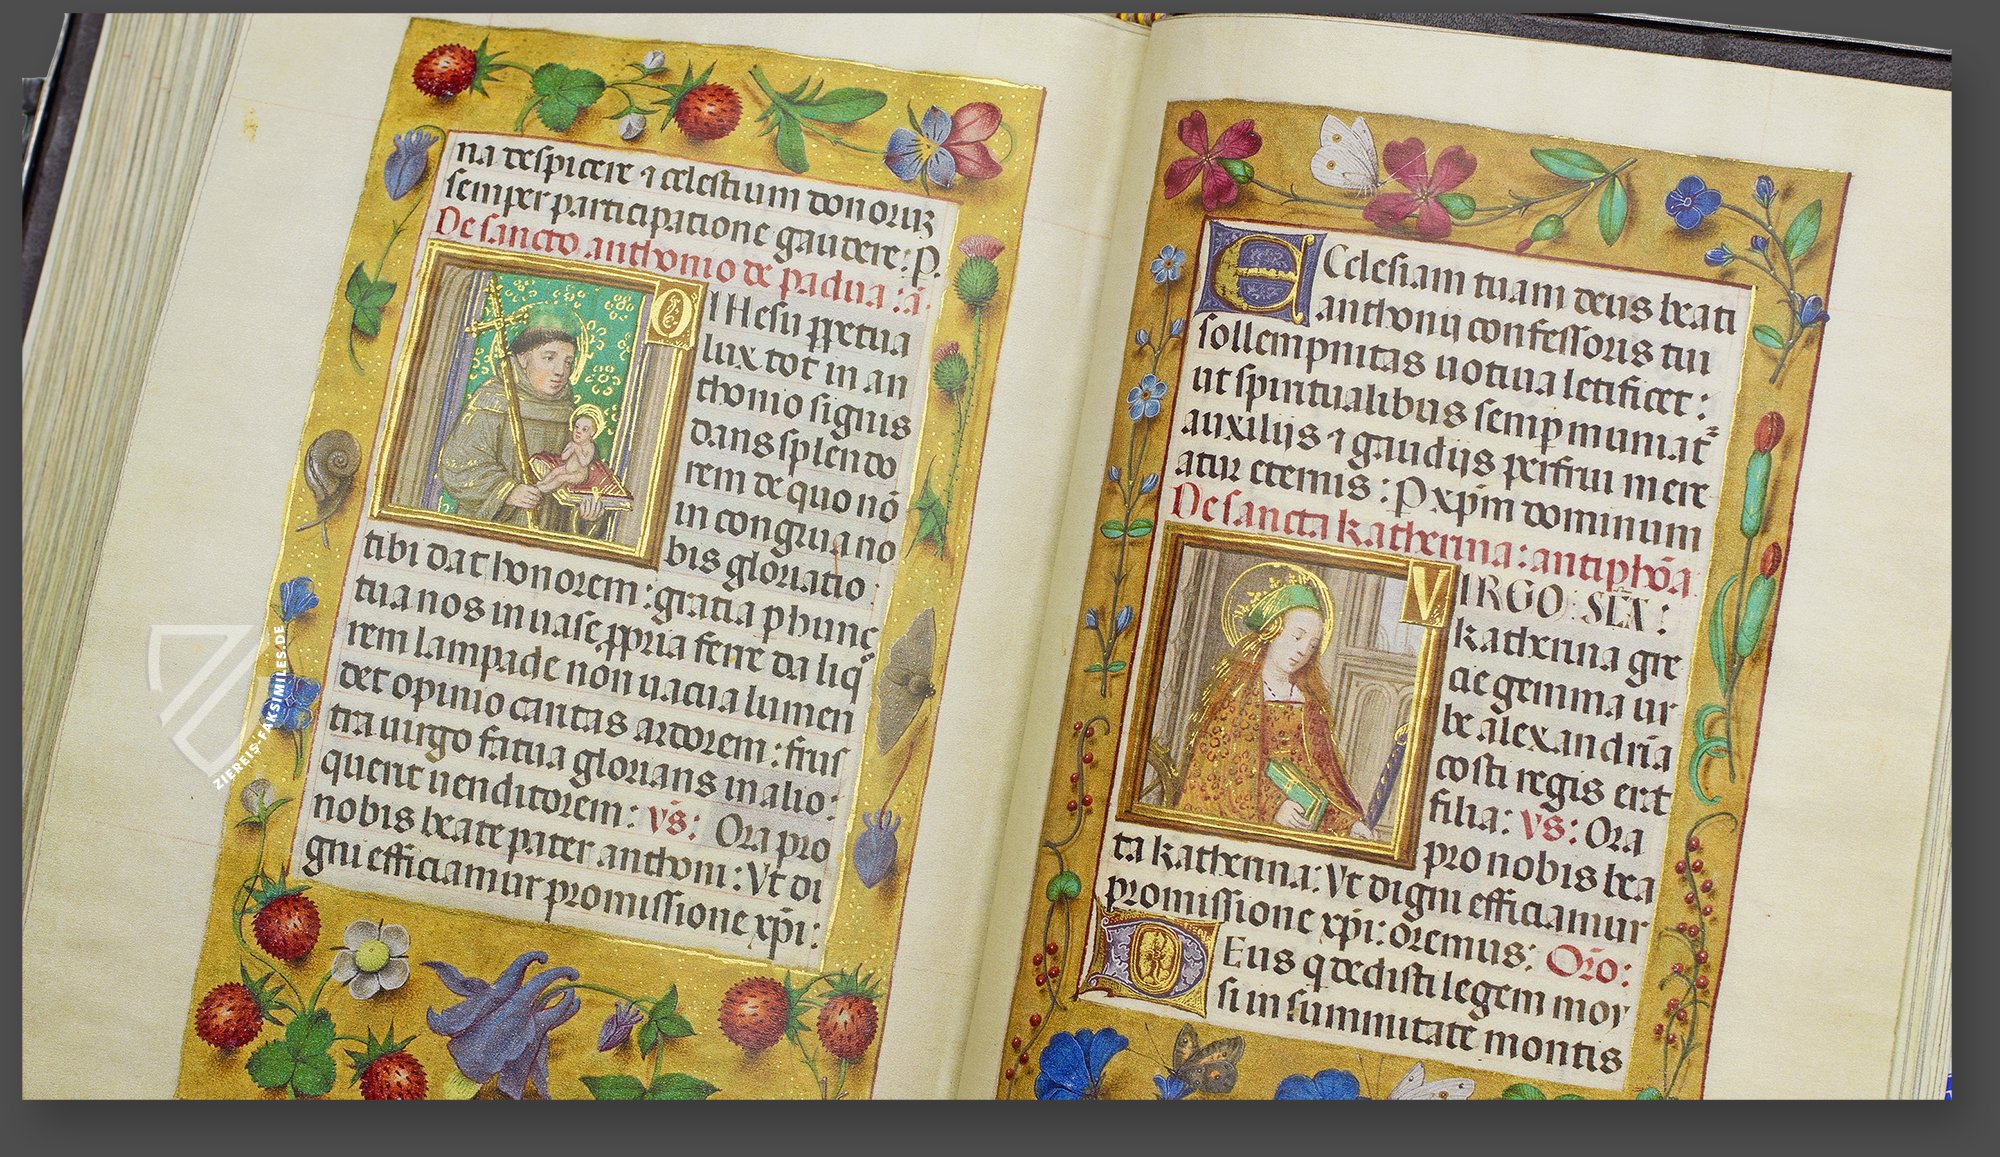 na despicere ⁊ celestium donoruz
semper participatione gaudere: P.
De sancto anthonio de padua :a.
O I Hesu ppetua
lux tot in an
thonio signis
dans splendo
rem de quo nō
in congrua no
bis gloriatio:
tibi dat honorem: gratia p hunc
tua nos in uase ppria ferre da liq
rem lampade non uacua lumen
det opinio caritas ardorem: frus
tra uirgo fatua glorians in alio:
querit uenditorem: vs: Ora pro
nobis beate pater anthoni: Vt di
gni efficiamur promissione xpi:
ECclesiam tuam deus beati
anthonij confessoris tui
sollempnitas uotiua letificet:
ut spiritualibus semp muniat
auxilijs ⁊ gaudijs perfrui mere
atur eternis: P xpm dominum
De sancta katherina: antiphōa
VIRGO: SEX:
katherina gre
cie gemma ur
be alexandria
costi regis erat
filia: vs: Ora
pro nobis bea
ta katherina: Vt digni efficiamur
promissione xpi: oremus: Oro:
DEus q dedisti legem moy
si in summitate montis
ZIEREIS-FAKSIMILES.DE